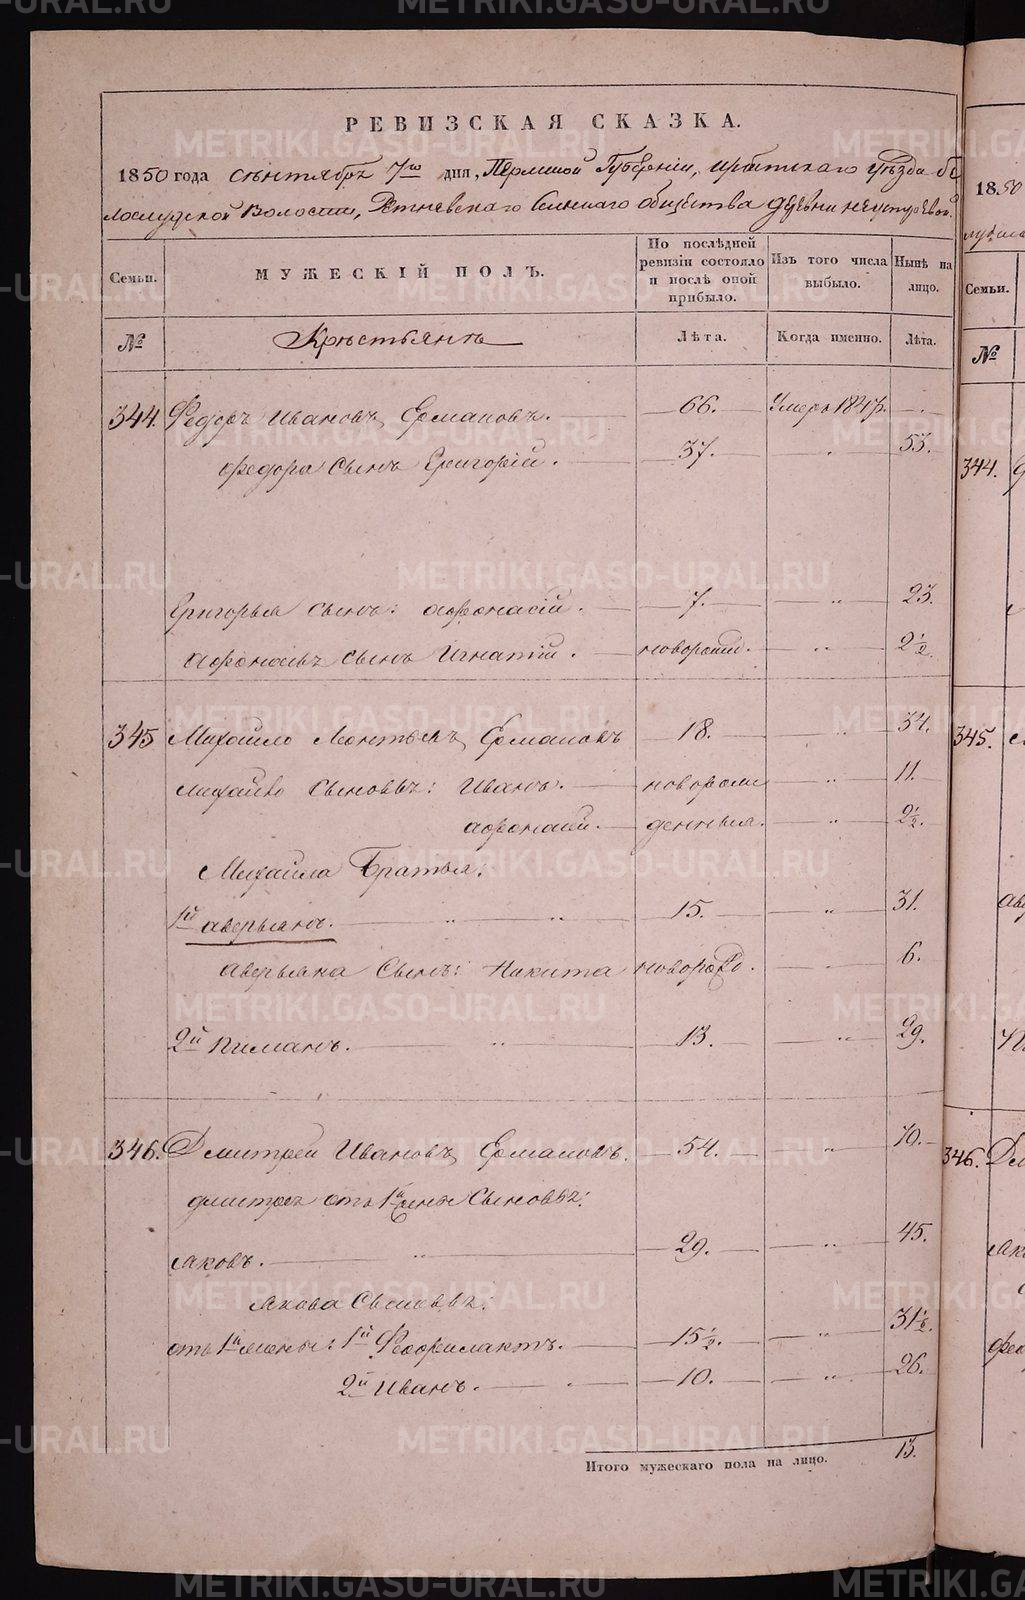 METRIKI.GASO-URAL.RU
РЕВИЗСКАЯ СКАЗКА.
1850 года сентября 7го дня, Пермской Губерніи, Ирбитскаго уѣзда Бѣ
лослудской Волости, Ретневскаго Сельскаго общества деревни Неустроевой.
Семьи.
МУЖЕСКІЙ ПОЛЪ.
По послѣдней ревизіи состояло и послѣ оной прибыло.
Изъ того числа выбыло.
Нынѣ на лицо.
№
Крестьянъ
Лѣта.
Когда именно.
Лѣта.
344. Федоръ Ивановъ Ермаковъ. 66. Умеръ 1847. -
Федора сынъ Григорій. 37. „ 53.
Григорья сынъ: Афонасій. 7. „ 23.
Афонасья сынъ Игнатій. новорожд. „ 2 1/2.
345 Михайло Леонтьевъ Ермаковъ 18. „ 34.
Михайло сыновья: Иванъ. новорож „ 11.
Афонасій. денныя. „ 2 1/2.
Михайла Братья:
1й Аверьянъ. „ „ 15. „ 31.
Аверьяна Сынъ: Никита новорожд. „ 6.
2й Пиманъ. „ 13. „ 29.
346. Дмитрей Ивановъ Ермаковъ. 54. „ 70.
Дмитрея отъ 1й жены Сыновья:
Яковъ. „ 29. „ 45.
Якова Сыновья:
отъ 1й жены: 1й Феофилактъ. 15 1/2. „ 31 1/2.
2й Иванъ. 10. „ 26.
Итого мужескаго пола на лицо. 13.
1850
Семьи.
№
344.
345.
346.